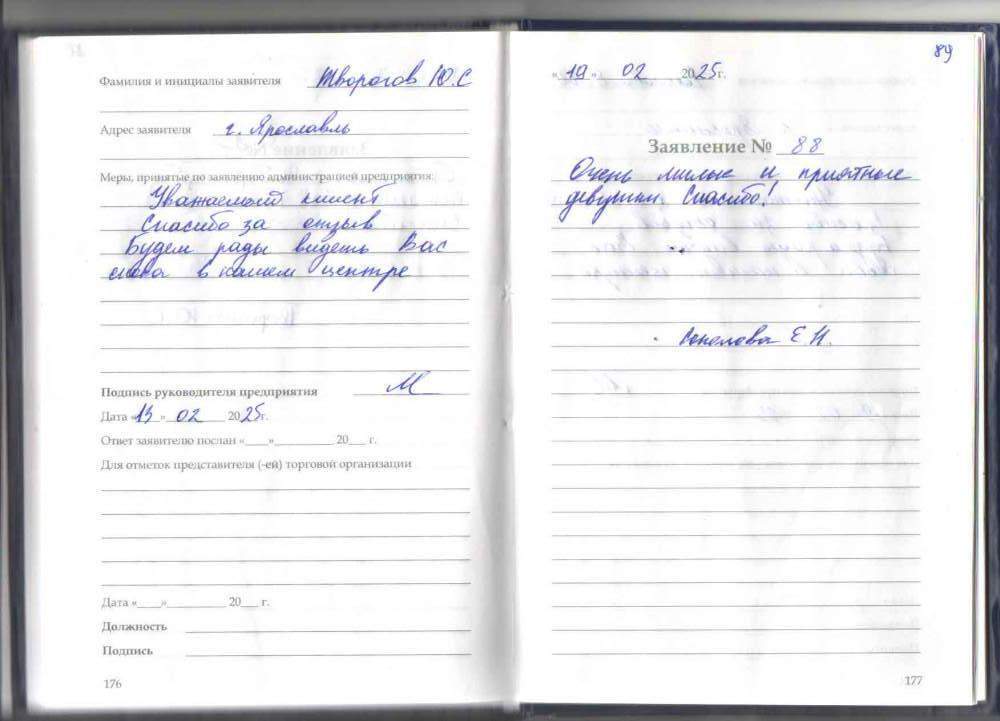 Фамилия и инициалы заявителя Творогов Ю.С
Адрес заявителя г. Ярославль
Меры, принятые по заявлению администрацией предприятия:
Уважаемый клиент
Спасибо за отзыв
Будем рады видеть Вас
снова в нашем центре
Подпись руководителя предприятия
Дата «13» 02 2025г.
Ответ заявителю послан «____»__________ 20___ г.
Для отметок представителя (-ей) торговой организации
Дата «____»__________ 20___ г.
Должность
Подпись
176
89
«19» 02 2025г.
Заявление № 88
Очень милые и приятные
девушки. Спасибо!
Соколова Е.Н.
177